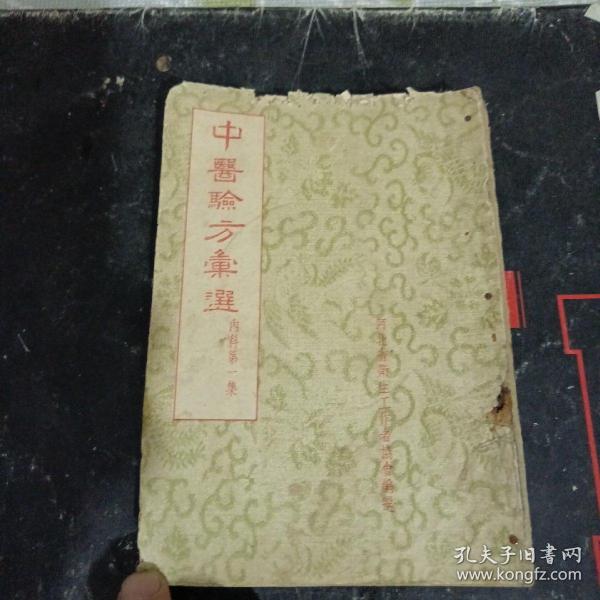 中醫驗方彙選
內科第一集
河北省衛生工作者協會編纂
孔夫子旧書网
www.kongfz.com